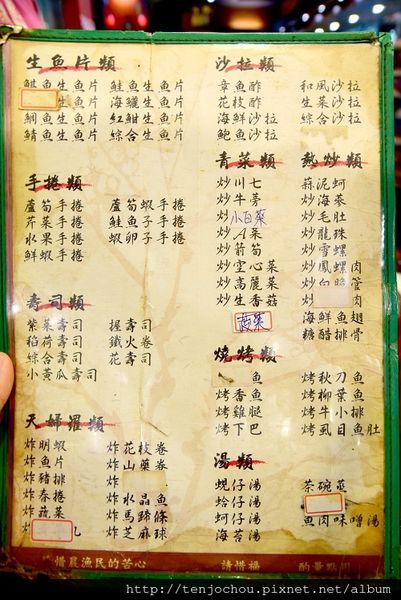 生魚片類
魽魚生魚片 鮭魚生魚片
生魚片 海鱺生魚片
鯛魚生魚片 紅魽生魚片
鯖魚生魚片 綜合生魚片
手捲類
蘆筍手捲 蘆筍蝦手捲
芹菜手捲 鮭魚子手捲
水果手捲 蝦卵子手捲
鮮蝦手捲
壽司類
紫菜壽司 握壽司
稻荷壽司 鐵火卷
綜合壽司 花壽司
小黃瓜壽司
天婦羅類
炸明蝦 炸花枝卷
炸魚片 炸山藥卷
炸豬排 炸
炸春捲 炸水晶魚
炸蔬菜 炸馬蹄條
炸 炸芝麻球
沙拉類
章魚酢 和風沙拉
花枝酢 生菜沙拉
海鮮沙拉 綜合沙拉
鮑魚沙拉
青菜類 熱炒類
炒川七 蒜泥蚵
炒牛蒡 炒海蔘
炒小白菜 炒毛肚
炒A菜 炒龍珠
炒箭筍 炒雪螺
炒空心菜 炒鳳螺肉
炒高麗菜 炒
炒生香菇 炒
海鮮魚翅
糖醋排骨
燒烤類
魚 烤秋刀魚
烤香魚 烤柳葉魚
烤雞腿 烤牛小排
烤下巴 烤虱目魚肚
湯類
蜆仔湯 茶碗蒸
蛤仔湯
蚵仔湯 魚肉味噌湯
海苔湯
惜農漁民的苦心 請惜福 酌量點用
http://tenjochou.pixnet.net/album